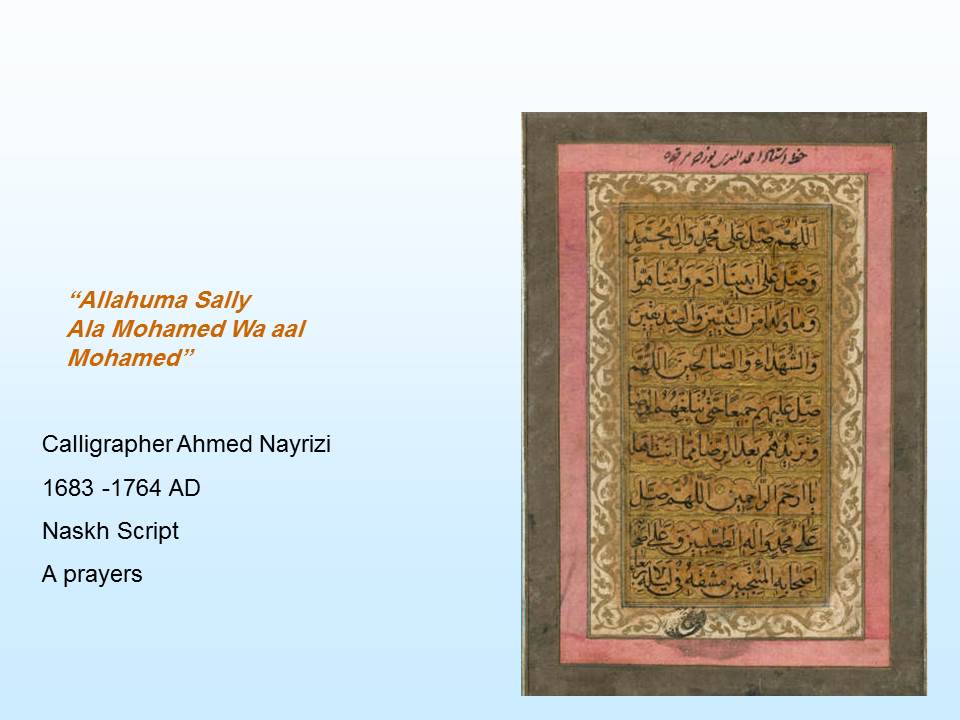 “Allahuma Sally
Ala Mohamed Wa aal
Mohamed”
Calligrapher Ahmed Nayrizi
1683 -1764 AD
Naskh Script
A prayers
خط استاد احمد
اَللّهُمَّ صَلِّ عَلى مُحَمَّدٍ وَالِ مُحَمَّدٍ
وَصَلِّ عَلى اَبينا ادَمَ وَاُمِّنا حَوّاءَ
وَما وَلَدا مِنَ النَّبِيّينَ وَالصِّدّيقينَ
وَالشُّهَداءِ وَالصّالِحينَ اَللّهُمَّ
صَلِّ عَلَيْهِمْ جَميعًا حَتّى تُبَلِّغَهُمُ الرِّضا
وَتَزيدَهُمْ بَعْدَ الرِّضا مِمّا
يا اَرْحَمَ الرّاحِمينَ اَللّهُمَّ صَلِّ
عَلى مُحَمَّدٍ وَالِهِ الطَّيِّبينَ وَعَلى
اَصْحابِهِ الْمُنْتَجَبينَ